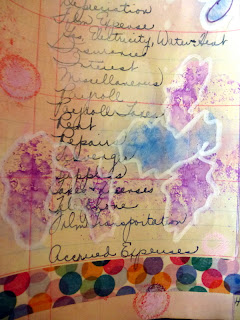 Depreciation
Film Expense
Gas, Electricity, Water & Heat
Insurance
Interest
Miscellaneous
Payroll
Payroll Taxes
Rent
Repairs
Scavenger
Supplies
Taxes & Licenses
Telephone
Film Transportation
Accrued Expenses